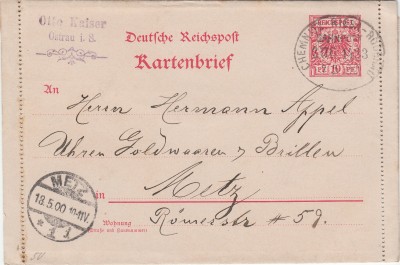 Otto Kaiser
Ostrau i. S.
Deutsche Reichspost
Kartenbrief
REICHSPOST
CHEMNITZ
An
Herrn Hermann Appel
Uhren Goldwaaren & Brillen
in Metz
Wohnung
(Straße und Hausnummer)
Römerstr # 59.
METZ
18.5.00 10-11V.
* 1 j
50